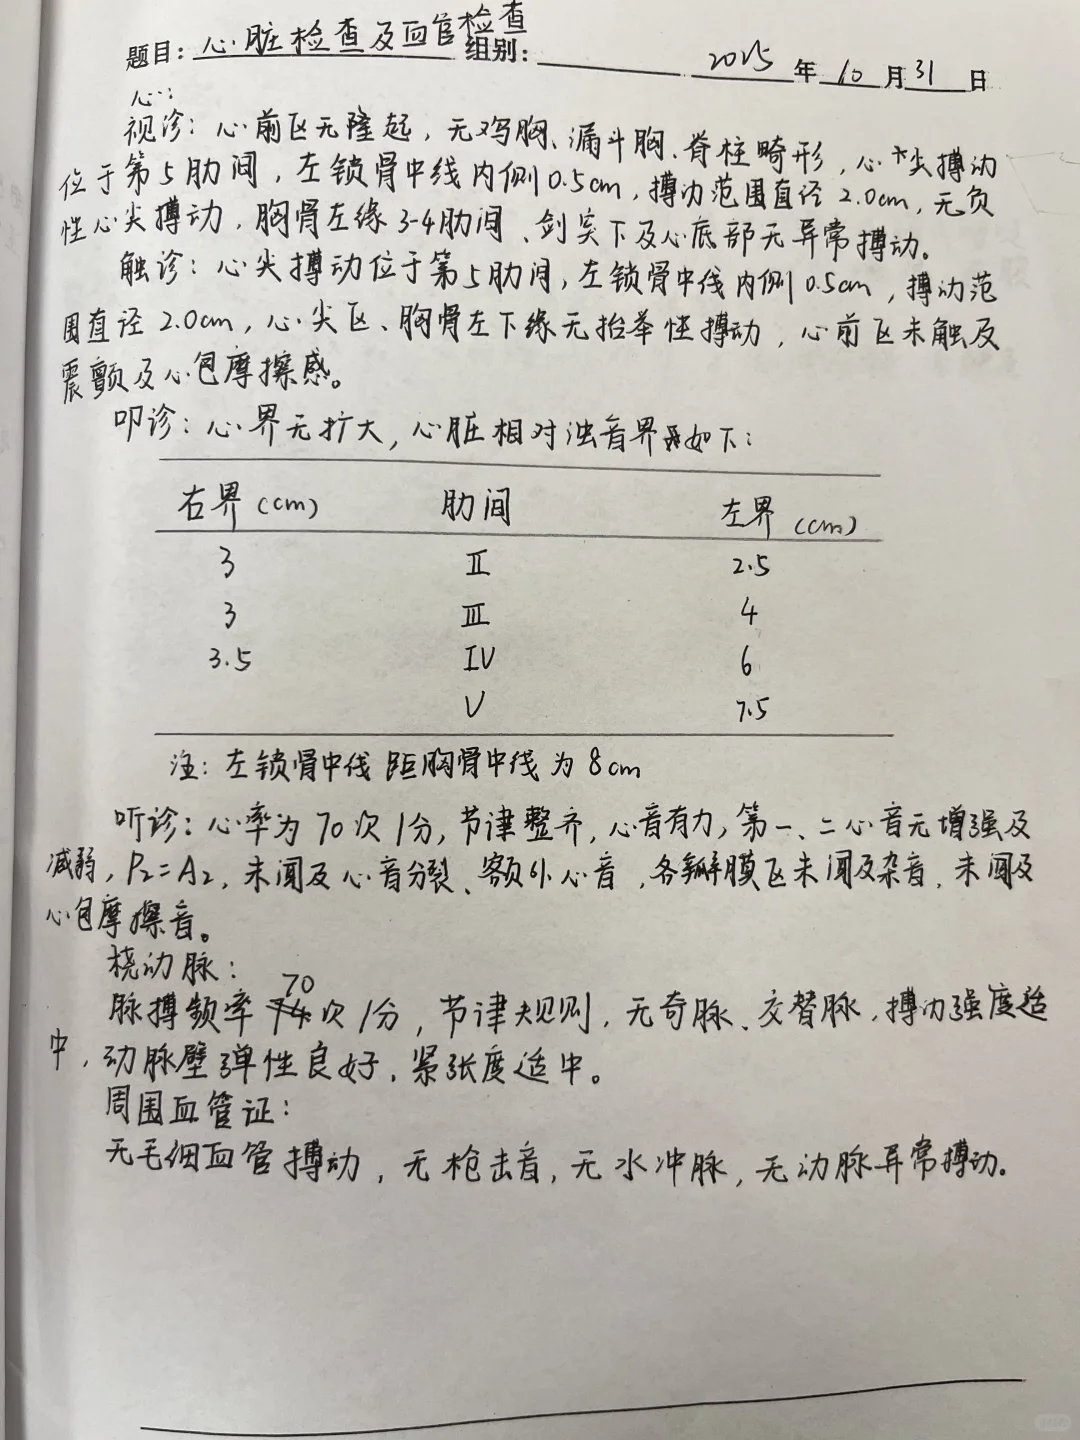 题目：心脏检查及血管检查 组别： 2025年10月31日
心：
视诊：心前区无隆起，无鸡胸、漏斗胸、脊柱畸形，心尖搏动
位于第5肋间，左锁骨中线内侧0.5cm，搏动范围直径2.0cm，无负
性心尖搏动，胸骨左缘3-4肋间、剑突下及心底部无异常搏动。
触诊：心尖搏动位于第5肋间，左锁骨中线内侧0.5cm，搏动范
围直径2.0cm，心尖区、胸骨左下缘无抬举性搏动，心前区未触及
震颤及心包摩擦感。
叩诊：心界无扩大，心脏相对浊音界如下：
右界(cm) 肋间 左界(cm)
3 Ⅱ 2.5
3 Ⅲ 4
3.5 Ⅳ 6
Ⅴ 7.5
注：左锁骨中线距胸骨中线为8cm
听诊：心率为70次/分，节律整齐，心音有力，第一、二心音无增强及
减弱，P₂=A₂，未闻及心音分裂、额外心音，各瓣膜区未闻及杂音，未闻及
心包摩擦音。
桡动脉：
脉搏频率70次/分，节律规则，无奇脉、交替脉，搏动强度适
中，动脉壁弹性良好，紧张度适中。
周围血管证：
无毛细血管搏动，无枪击音，无水冲脉，无动脉异常搏动。